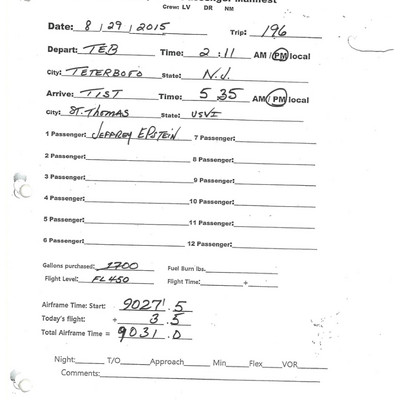 Passenger Manifest
Crew: LV DR NM
Date: 8 / 29 / 2015 Trip: 196
Depart: TEB Time: 2:11 AM / PM local
City: TETERBORO State: N.J.
Arrive: TIST Time: 5:35 AM / PM local
City: ST. THOMAS State: USVI
1 Passenger: JEFFREY EPSTEIN 7 Passenger:
2 Passenger: 8 Passenger:
3 Passenger: 9 Passenger:
4 Passenger: 10 Passenger:
5 Passenger: 11 Passenger:
6 Passenger: 12 Passenger:
Gallons purchased: 1700 Fuel Burn lbs.
Flight Level: FL450 Flight Time: +
Airframe Time: Start: 9027.5
Today's flight: + 3.5
Total Airframe Time = 9031.0
Night: T/O Approach Min Flex VOR
Comments: